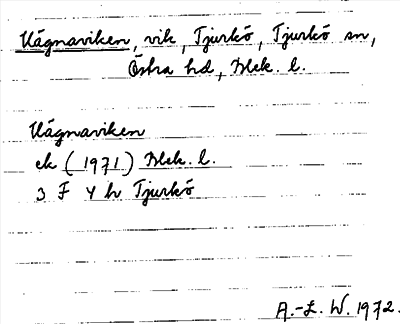 Vågnaviken, vik, Tjurkö, Tjurkö sn,
Östra hd, Blek. l.
Vågnaviken
ek (1971) Blek. l.
3 F 4 h Tjurkö
A.-L. W. 1972.